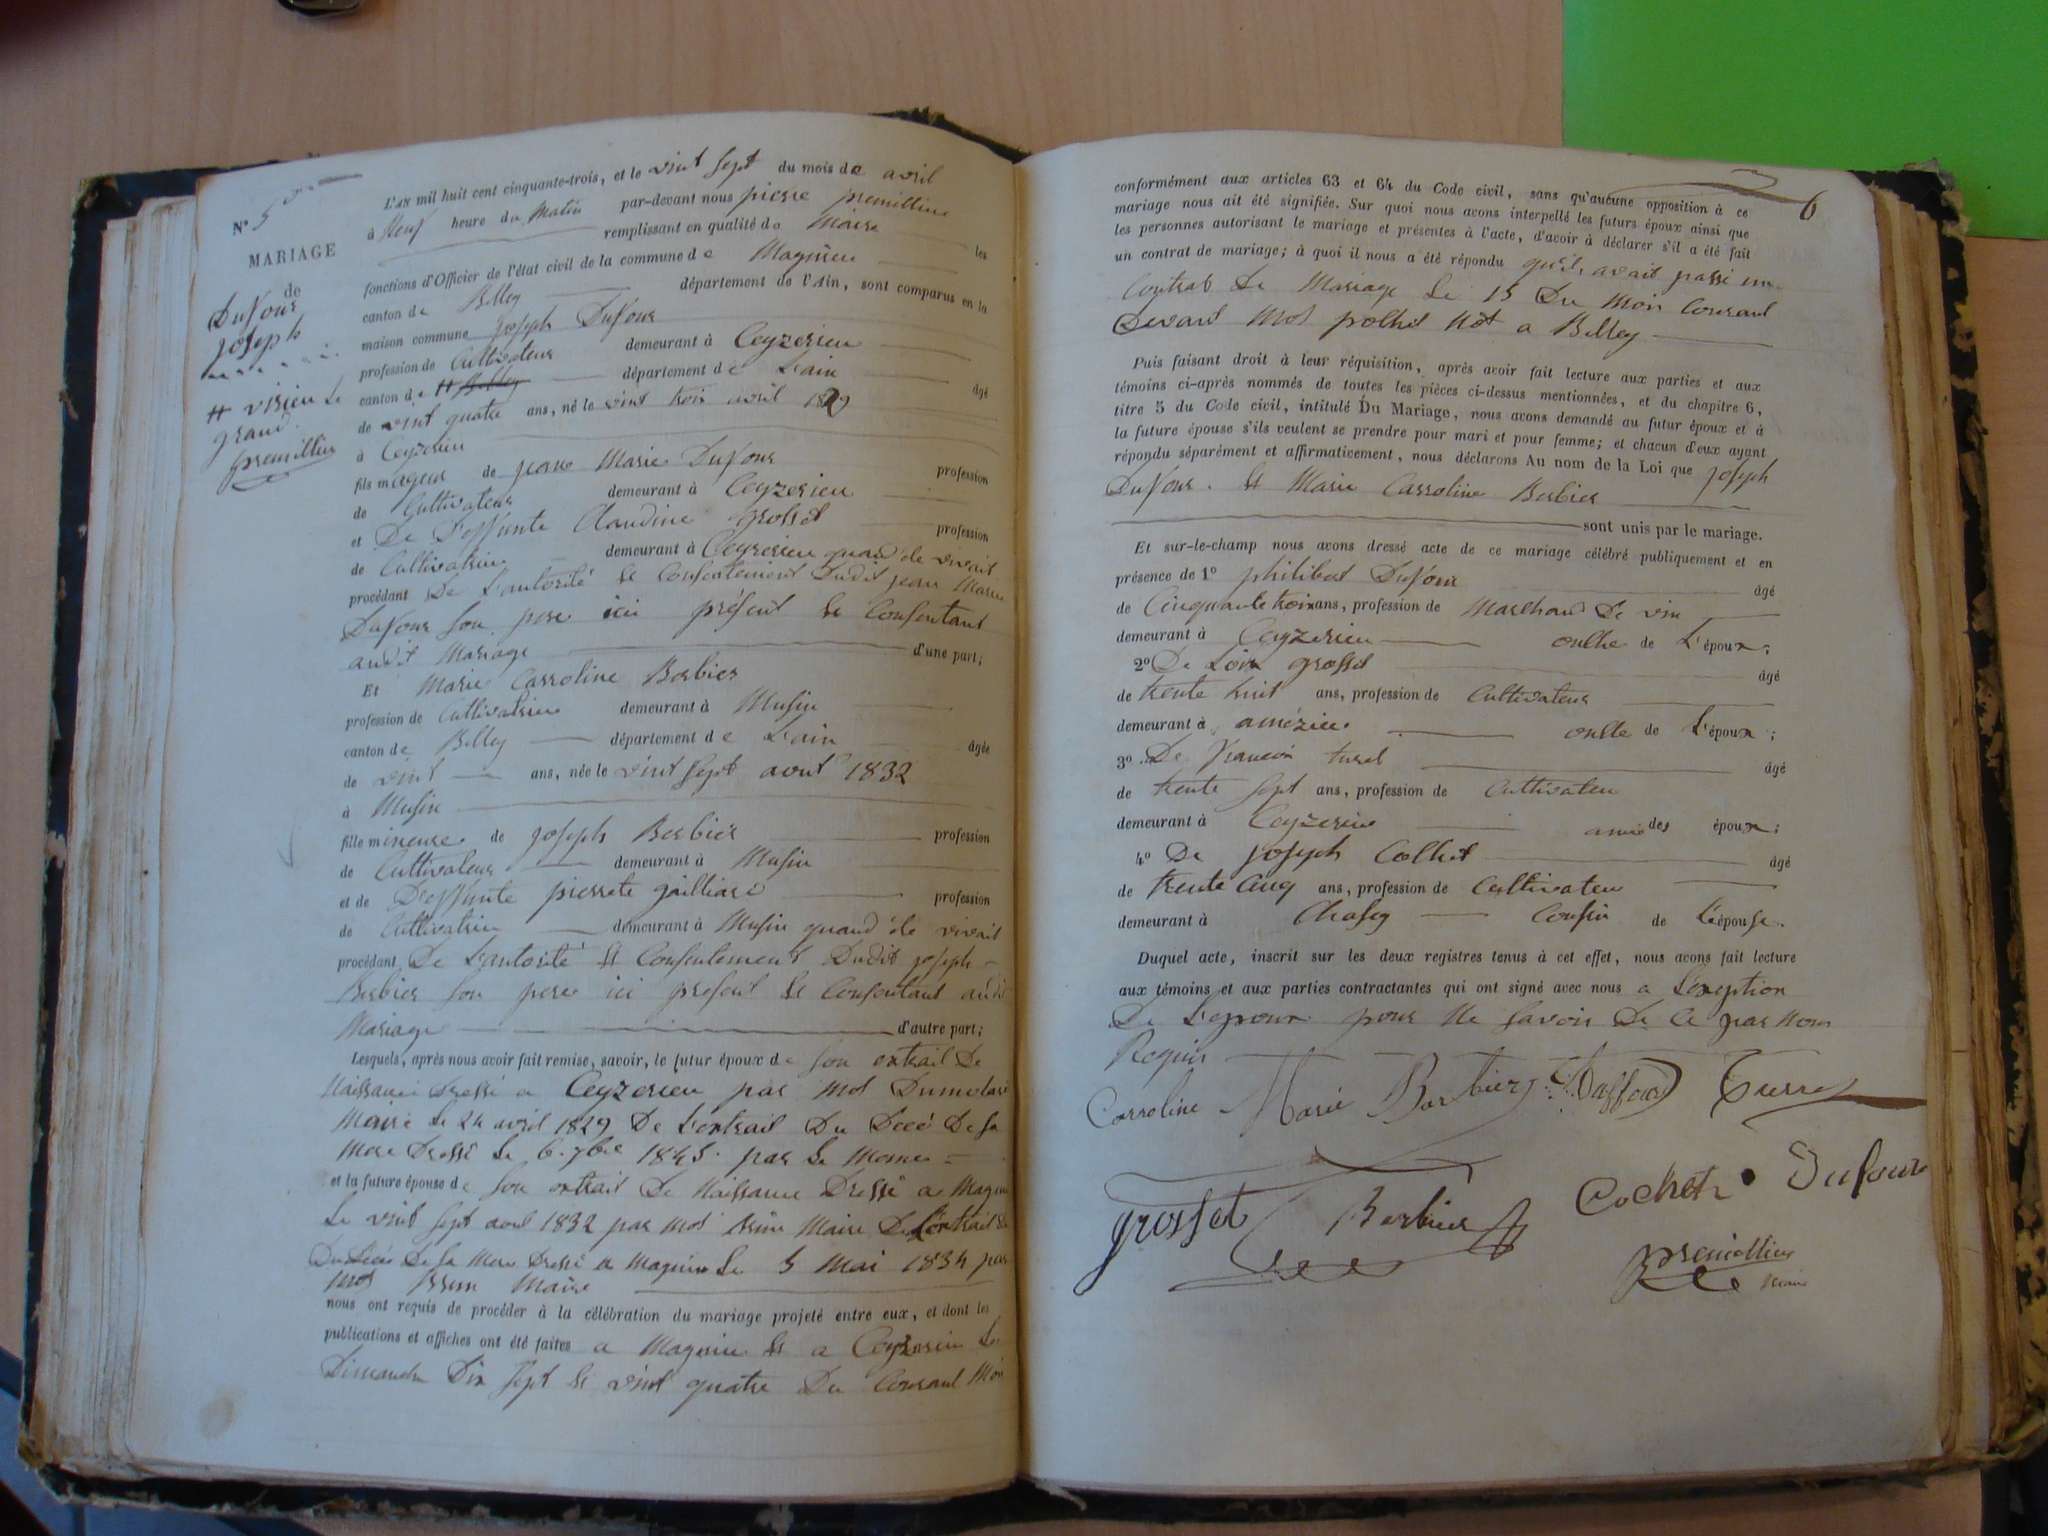 N° 5
MARIAGE
de
Dufour
joseph
# virieu Le
grand.
premillieu
L'AN mil huit cent cinquante-trois, et le vint sept du mois de avril
à Neuf heure du Matin par-devant nous pierre premillieu
remplissant en qualité de Maire les
fonctions d'Officier de l'état civil de la commune de Magnieu
canton de Belley département de l'Ain, sont comparus en la
maison commune joseph Dufour
profession de Cultivateur demeurant à Ceyzerieu
canton de # Belley département de L'ain âgé
de vint quatre ans, né le vint trois avril 1829
à Ceyzerieu
fils mageur de jean Marie Dufour profession
de Cultivateur demeurant à Ceyzerieu
et De Deffunte Claudine grosset profession
de Cultivatrice demeurant à Ceyzerieu quand ele vivait
procédant De L'autorité Et Consentement Dudit jean Marie
Dufour son pere ici présent Et Consentant
audit Mariage d'une part;
Et Marie Carroline Berbier
profession de Cultivatrice demeurant à Musin
canton de Belley département de L'ain âgée
de vint ans, née le vint sept avril 1832
à Musin
fille mineure de joseph Berbier profession
de Cultivateur demeurant à Musin
et de Deffunte pierrete gailliard profession
de Cultivatrice demeurant à Musin quand ele vivait
procédant De L'autorité Et Consentement Dudit joseph
Berbier son pere ici present Et Consentant audit
Mariage d'autre part;
Lesquels, après nous avoir fait remise, savoir, le futur époux de son extrait De
Naissance Dressé a Ceyzerieu par Mol Dumolard
Maire Le 24 avril 1829 De L'extrait Du Décé De sa
Mere Dressé Le 6. 7bre 1845. par Le Meme
et la future épouse de son extrait De Naissance Dressé a Magnieu
Le vint sept avril 1832 par Mol Brun Maire De L'extrait
Du Décé De sa Mere Dressé a Magnieu Le 5 Mai 1834 par
Mol Brun Maire
nous ont requis de procéder à la célébration du mariage projeté entre eux, et dont les
publications et affiches ont été faites a Magnieu Et a Ceyzerieu Le
Dimanche Dix sept Et vint quatre Du Courant Mois
6
conformément aux articles 63 et 64 du Code civil, sans qu'aucune opposition à ce
mariage nous ait été signifiée. Sur quoi nous avons interpellé les futurs époux ainsi que
les personnes autorisant le mariage et présentes à l'acte, d'avoir à déclarer s'il a été fait
un contrat de mariage; à quoi il nous a été répondu qu'il avait passé un
Contrat De Mariage Le 15 Du Mois Courant
Devant Mol Not a Belley
Puis faisant droit à leur réquisition, après avoir fait lecture aux parties et aux
témoins ci-après nommés de toutes les pièces ci-dessus mentionnées, et du chapitre 6,
titre 5 du Code civil, intitulé Du Mariage, nous avons demandé au futur époux et à
la future épouse s'ils veulent se prendre pour mari et pour femme; et chacun d'eux ayant
répondu séparément et affirmativement, nous déclarons Au nom de la Loi que joseph
Dufour. Et Marie Carroline Berbier
sont unis par le mariage.
Et sur-le-champ nous avons dressé acte de ce mariage célébré publiquement et en
présence de 1° philibert Dufour âgé
de Cinquante trois ans, profession de Marchand De vin
demeurant à Ceyzerieu oncle de L'époux;
2° De grosset âgé
de trente huit ans, profession de Cultivateur
demeurant à amézieu oncle de L'époux;
3° De turel âgé
de trente sept ans, profession de Cultivateur
demeurant à Ceyzerieu amie des époux;
4° De joseph Cochet âgé
de trente Cinq ans, profession de Cultivateur
demeurant à Chasey Cousin de L'épouse.
Duquel acte, inscrit sur les deux registres tenus à cet effet, nous avons fait lecture
aux témoins et aux parties contractantes qui ont signé avec nous a L'exeption
De L'epoux pour Ne savoir De Ce par Nous
Requis
Carroline Marie Barbier Duffour Turrel
grosset Berbier Cochet Dufour
premillieu
Maire